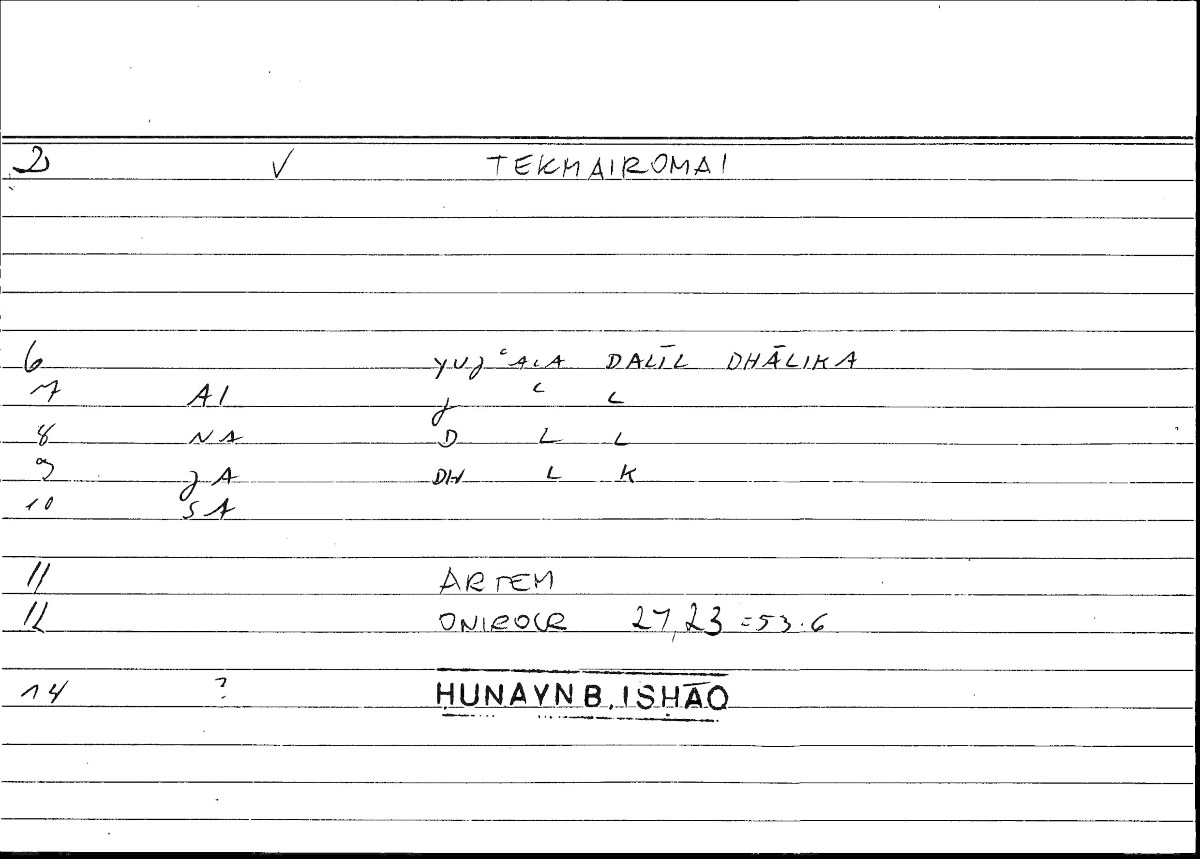 2 √ TEKMAIROMAI
6 YUJʿALA DALĪL DHĀLIKA
7 AI J ʿ L
8 NA D L L
9 JA DH L K
10 SA
11 ARTEM
12 ONIROCR 27,23 =53.6
14 ? ḤUNAYN B. ISḤĀQ